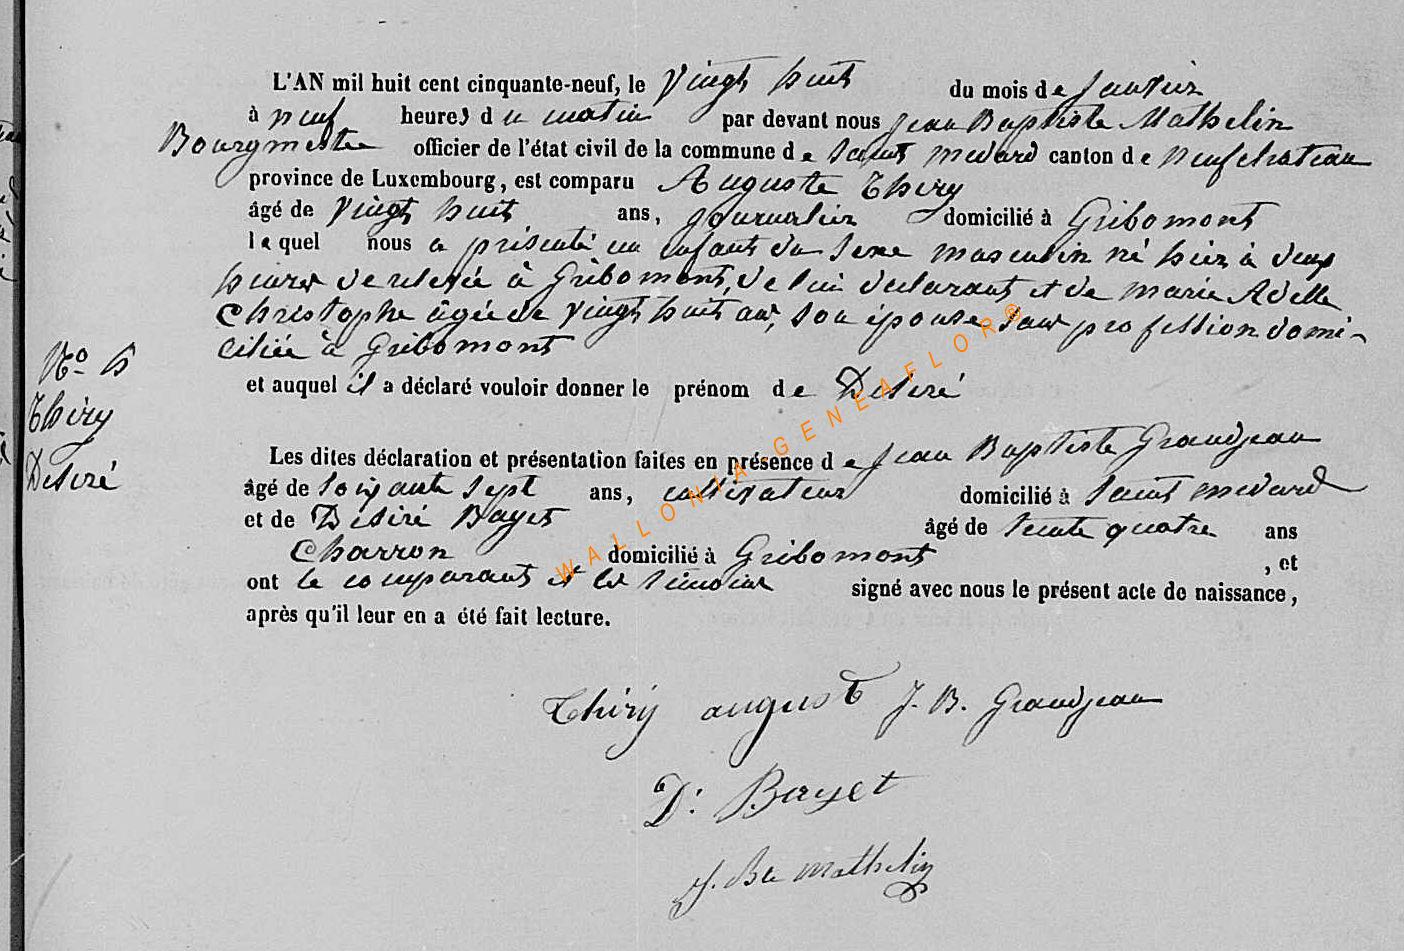 L'AN mil huit cent cinquante-neuf, le vingt huit du mois de Janvier
à neuf heures du matin par devant nous Jean Baptiste Mathelin
Bourgmestre officier de l'état civil de la commune de Saint medard canton de neufchateau
province de Luxembourg, est comparu Auguste Thiry
âgé de vingt huit ans, journalier domicilié à Gribomont
lequel nous a présenté un enfant du sexe masculin né hier à deux
heures de relevée à Gribomont, de lui déclarant et de marie Adelle
Christophe âgée de vingt huit ans, son épouse sans profession domi-
ciliée à Gribomont
et auquel il a déclaré vouloir donner le prénom de Désiré
No
Thiry
Désiré
Les dites déclaration et présentation faites en présence de Jean Baptiste Grandjean
âgé de soixante sept ans, cultivateur domicilié à Saint medard
et de Désiré Bayet âgé de trente quatre ans
Charron domicilié à Gribomont, et
ont le comparant et les témoins signé avec nous le présent acte de naissance,
après qu'il leur en a été fait lecture.
Thiry august J. B. Grandjean
D. Bayet
J. Bte Mathelin
WALLONIA-GENEAFLOR®